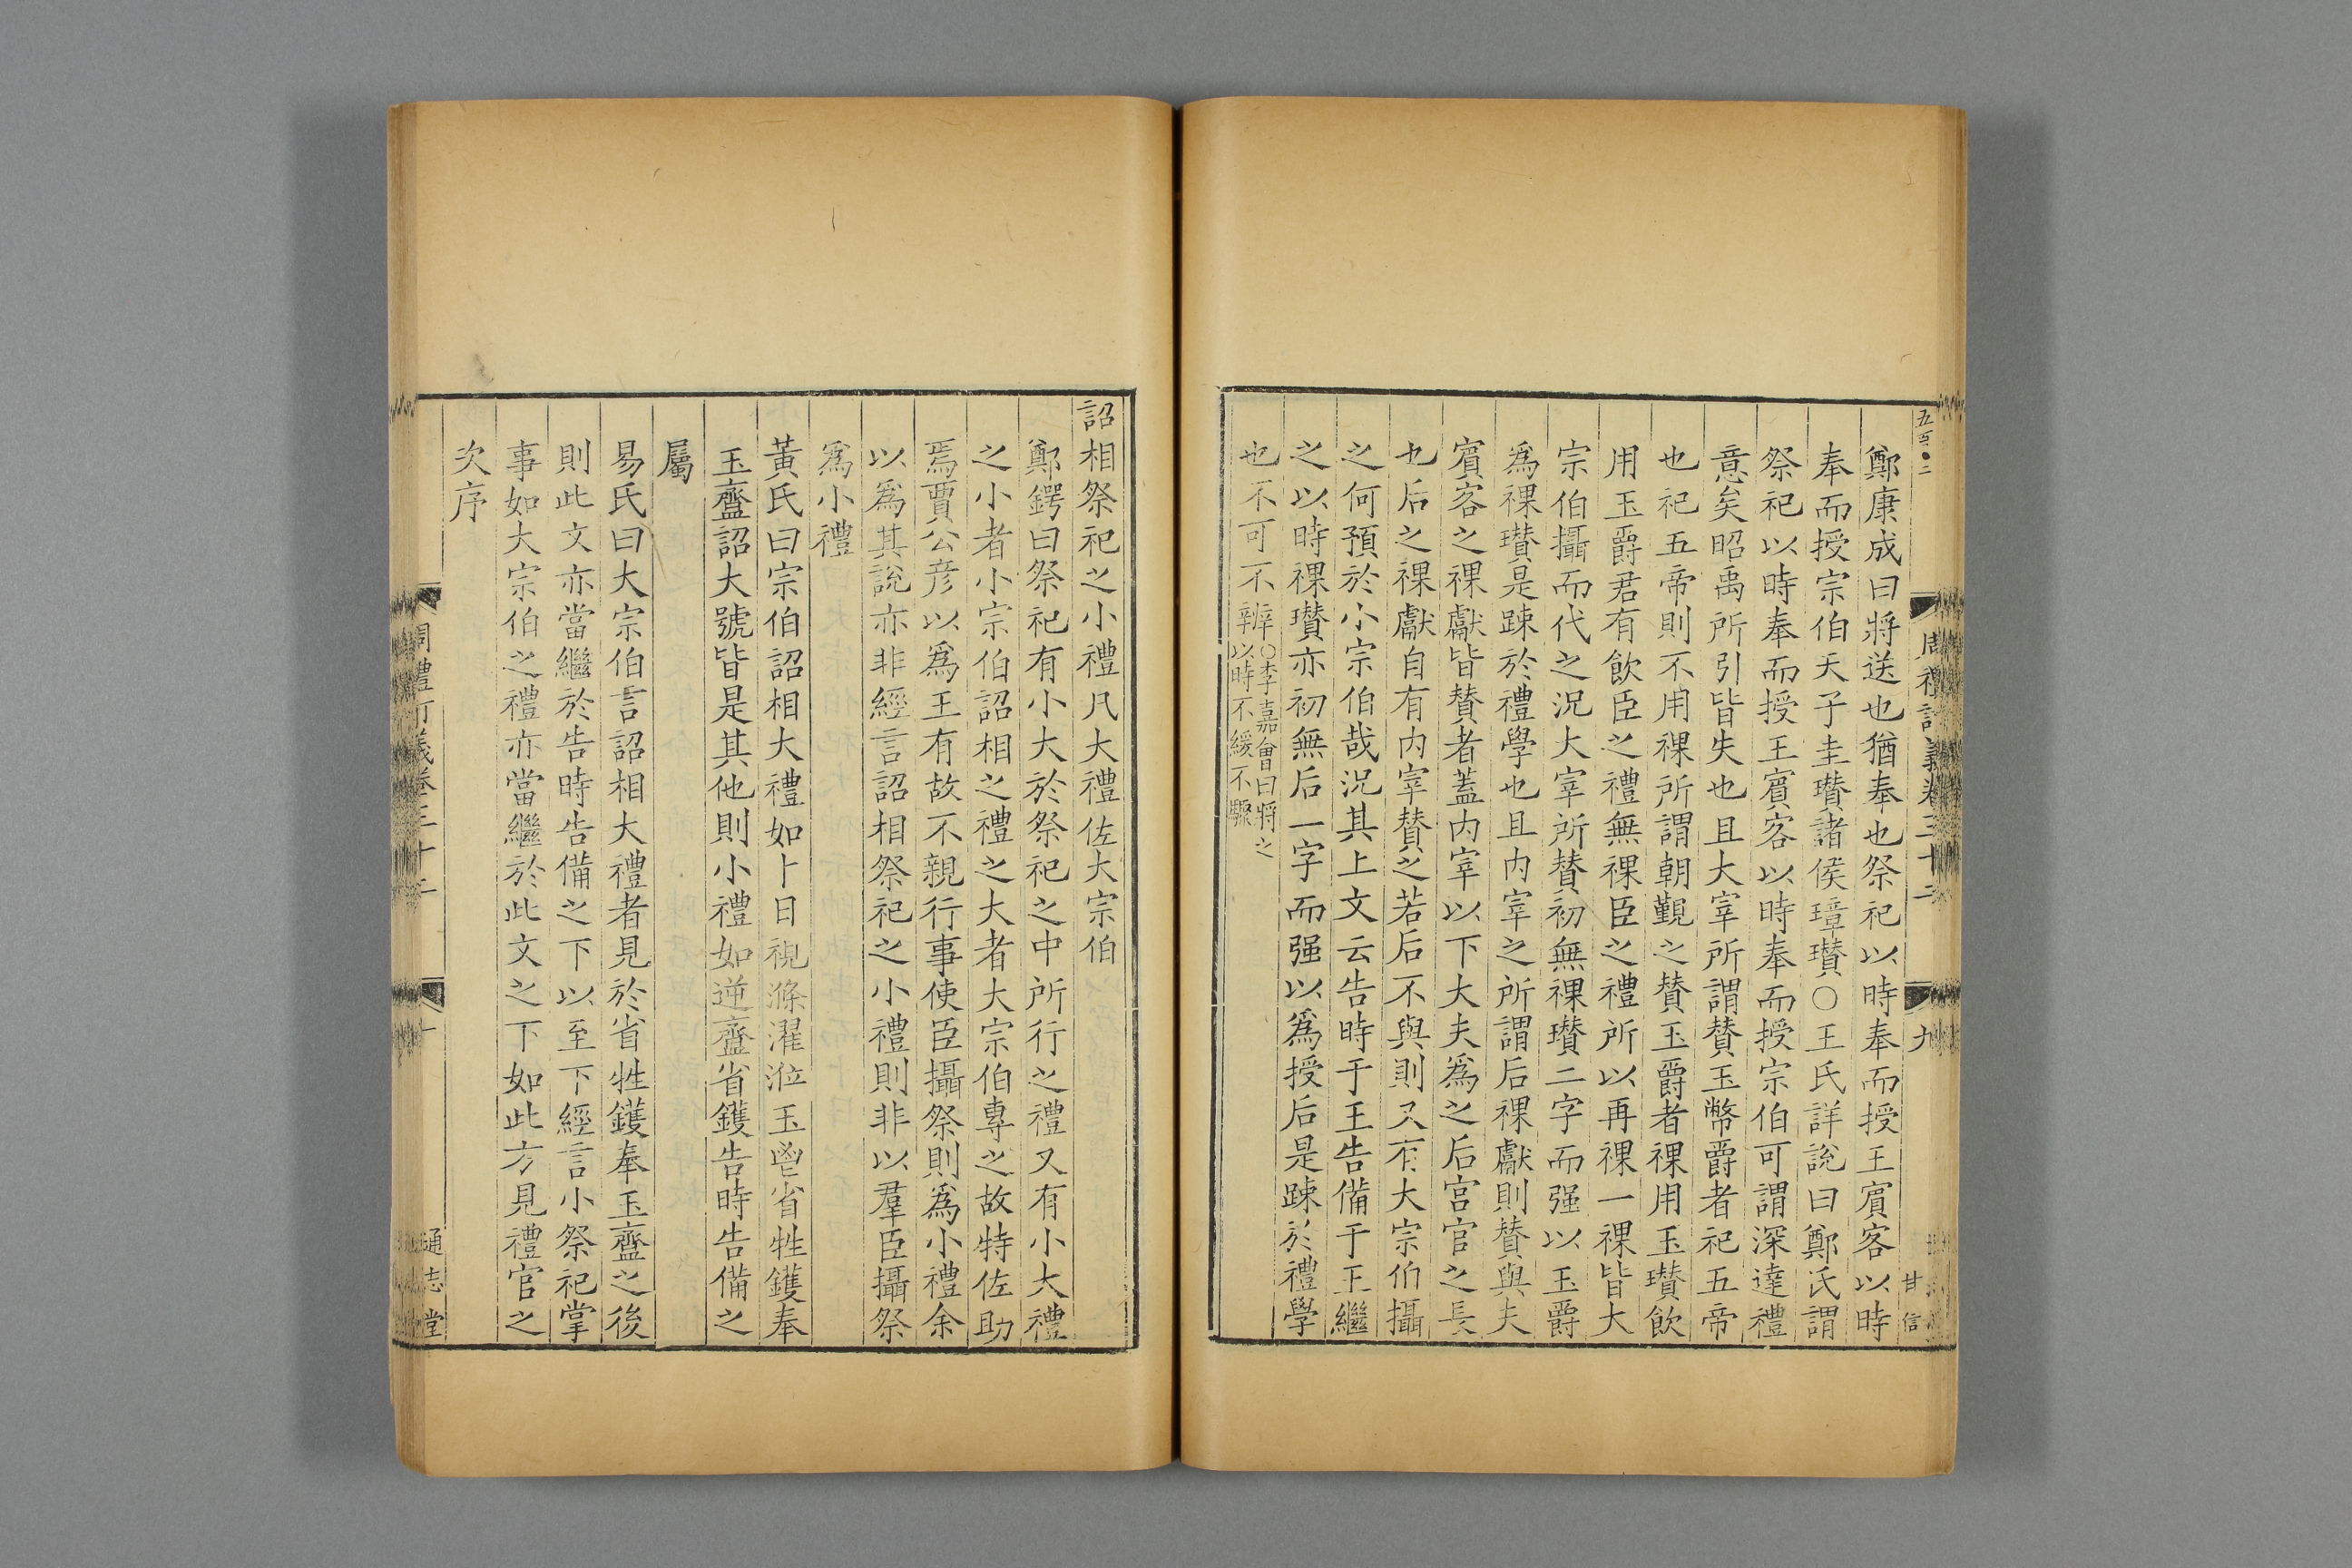 五百●二
周禮訂義卷三十二
九
甘信
鄭康成曰將送也猶奉也祭祀以時奉而授王賓客以時
奉而授宗伯天子圭瓚諸侯璋瓚○王氏詳說曰鄭氏謂
祭祀以時奉而授王賓客以時奉而授宗伯可謂深達禮
意矣昭禹所引皆失也且大宰所謂贊玉幣爵者祀五帝
也祀五帝則不用祼所謂朝覲之贊玉爵者祼用玉瓚飲
用玉爵君有飲臣之禮無祼臣之禮所以再祼一祼皆大
宗伯攝而代之況大宰所贊初無祼瓚二字而强以玉爵
爲祼瓚是踈於禮學也且内宰之所謂后祼獻則贊與夫
賓客之祼獻皆贊者蓋内宰以下大夫爲之后宫官之長
也后之祼獻自有内宰贊之若后不與則又有大宗伯攝
之何預於小宗伯哉況其上文云告時于王告備于王繼
之以時祼瓚亦初無后一字而强以爲授后是踈於禮學
也不可不辨○李嘉會曰將之
以時不緩不驟
詔相祭祀之小禮凡大禮佐大宗伯
鄭鍔曰祭祀有小大於祭祀之中所行之禮又有小大禮
之小者小宗伯詔相之禮之大者大宗伯專之故特佐助
焉賈公彦以爲王有故不親行事使臣攝祭則爲小禮余
以爲其說亦非經言詔相祭祀之小禮則非以羣臣攝祭
爲小禮
黃氏曰宗伯詔相大禮如卜日視滌濯涖玉鬯省牲鑊奉
玉齍詔大號皆是其他則小禮如逆齍省鑊告時告備之
屬
易氏曰大宗伯言詔相大禮者見於省牲鑊奉玉齍之後
則此文亦當繼於告時告備之下以至下經言小祭祀掌
事如大宗伯之禮亦當繼於此文之下如此方見禮官之
次序
周禮訂義卷三十二
十
通志堂